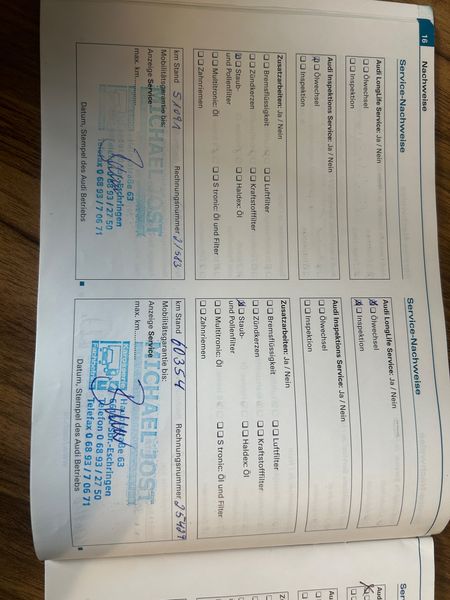 16
Nachweise
Service-Nachweise
Audi LongLife Service: Ja / Nein
Ölwechsel
Inspektion
Audi Inspektions Service: Ja / Nein
Ölwechsel
Inspektion
Zusatzarbeiten: Ja / Nein
Bremsflüssigkeit
Luftfilter
Zündkerzen
Kraftstofffilter
Staub- und Pollenfilter
Haldex: Öl
Multitronic: Öl
S tronic: Öl und Filter
Zahnriemen
km Stand 51091
Rechnungsnummer
Mobilitätsgarantie bis:
Anzeige Service
max. km
MICHAEL JOST
63
-Eschringen
0 68 93 / 27 50
Telefax 0 68 93 / 7 06 71
Datum, Stempel des Audi Betriebs
Service-Nachweise
Audi LongLife Service: Ja / Nein
Ölwechsel
Inspektion
Audi Inspektions Service: Ja / Nein
Ölwechsel
Inspektion
Zusatzarbeiten: Ja / Nein
Bremsflüssigkeit
Luftfilter
Zündkerzen
Kraftstofffilter
Staub- und Pollenfilter
Haldex: Öl
Multitronic: Öl
S tronic: Öl und Filter
Zahnriemen
km Stand 60354
Rechnungsnummer
Mobilitätsgarantie bis:
Anzeige Service
max. km
MICHAEL JOST
63
-Eschringen
0 68 93 / 27 50
Telefax 0 68 93 / 7 06 71
Datum, Stempel des Audi Betriebs